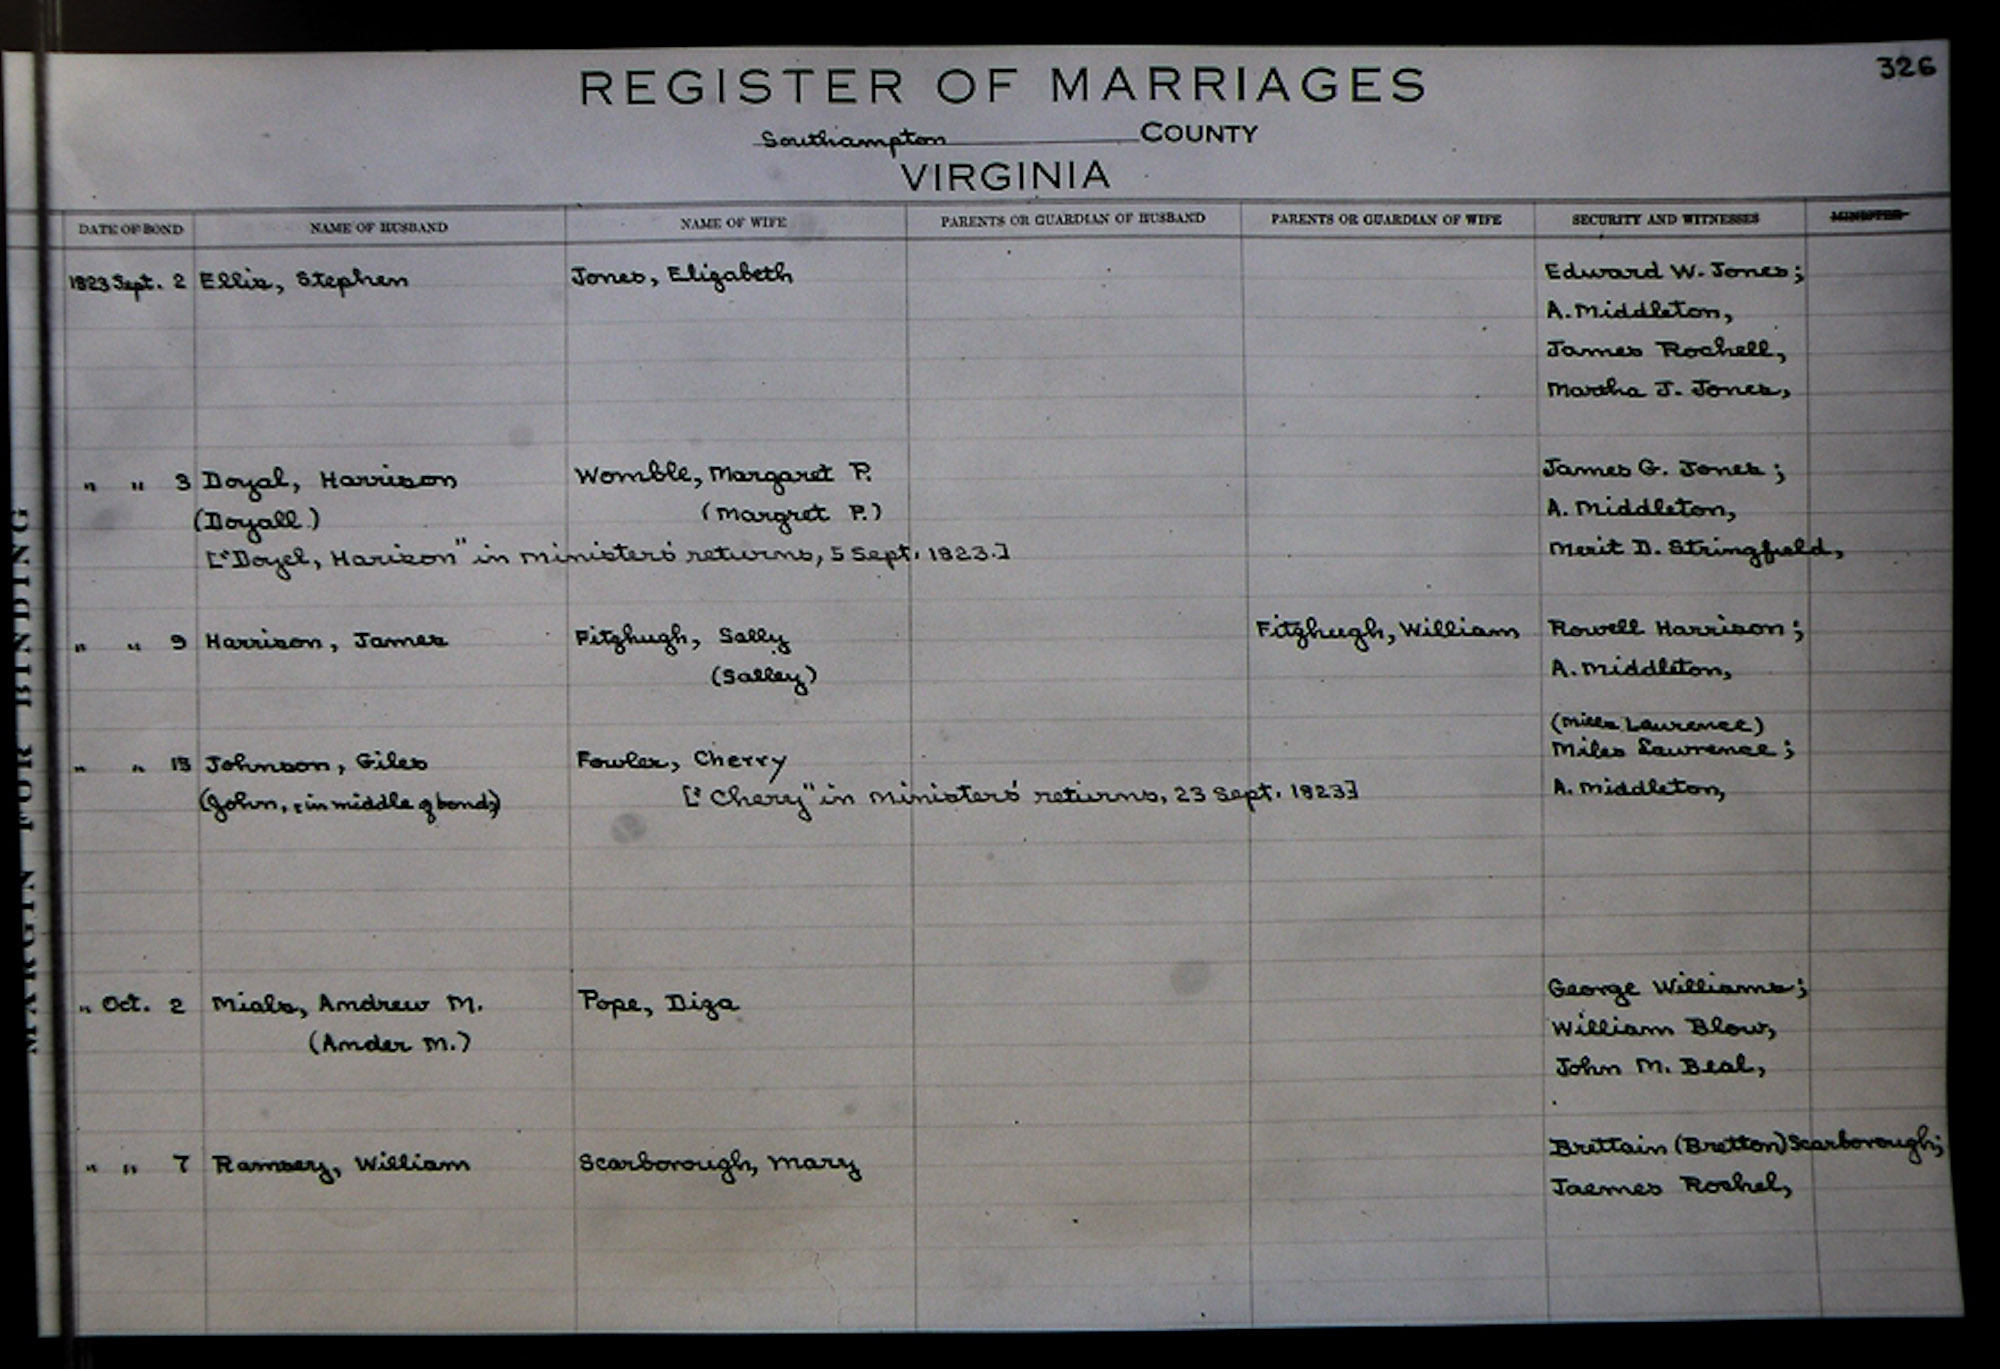 326
REGISTER OF MARRIAGES
Southampton COUNTY
VIRGINIA
DATE OF BOND NAME OF HUSBAND NAME OF WIFE PARENTS OR GUARDIAN OF HUSBAND PARENTS OR GUARDIAN OF WIFE SECURITY AND WITNESSES MINISTER
1823 Sept. 2 Ellis, Stephen Jones, Elizabeth Edward W. Jones;
A. Middleton,
James Rochell,
Martha J. Jones,
" " 3 Doyal, Harrison Womble, Margaret P. James G. Jones;
(Doyall) (Margret P.) A. Middleton,
["Doyel, Harison" in ministers' returns, 5 Sept. 1823.] Merit D. Stringfield,
" " 9 Harrison, James Fitzhugh, Sally Fitzhugh, William Rowell Harrison;
(Salley) A. Middleton,
(Laurence)
" " Johnson, Giles Fowler, Cherry Miles Lawrence;
(John, in middle of bond,) ["Chery" in ministers' returns, 23 Sept. 1823] A. Middleton,
" Oct. 2 Mials, Andrew M. Pope, Diza George Williams;
(Ander M.) William Blow,
John M. Beal,
" " 7 Ramsey, William Scarborough, Mary Brettain (Bretton) Scarborough;
Jaemes Rochel,
MARGIN FOR BINDING